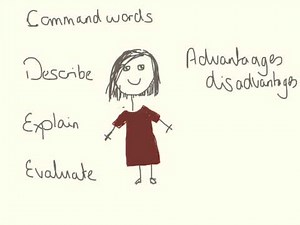 Command words
Describe
Explain
Evaluate
Advantaages
disadvantages